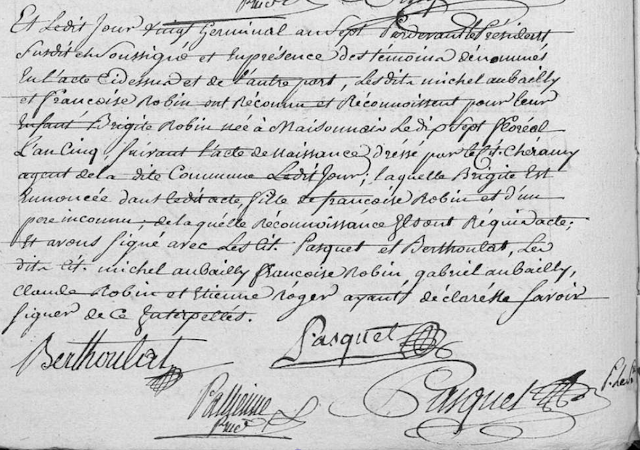 Et Ledit Jour vingt Germinal an Sept Pardevant le Président
Susdit et Soussigné et en présence des témoins dénommés
En l'acte Cidessus et de l'autre part, Lesdits michel aubailly
et francoise Robin ont Reconnu et Reconnoissent pour leur
Enfant Brigite Robin née à Maisonnais Le dix Sept floréal
L'an Cinq, suivant l'acte de Naissance dressé par le Cit. Chéramy
agent de la dite Commune Ledit Jour; laquelle Brigite Est
Ennoncée dans ledit acte, fille de francoise Robin et d'un
pere inconnu, de laquelle Réconnoissance Ils ont Réquis acte;
Et avons signé avec Les Cit. Pasquet et Berthoulat, Les
dits Cit. michel aubailly francoise Robin gabriel aubailly,
Claude Robin et Etienne Roger ayants déclaré Ne Savoir
signer de Ce Enterpelles.
Pasquet
Berthoulat
Pasquet